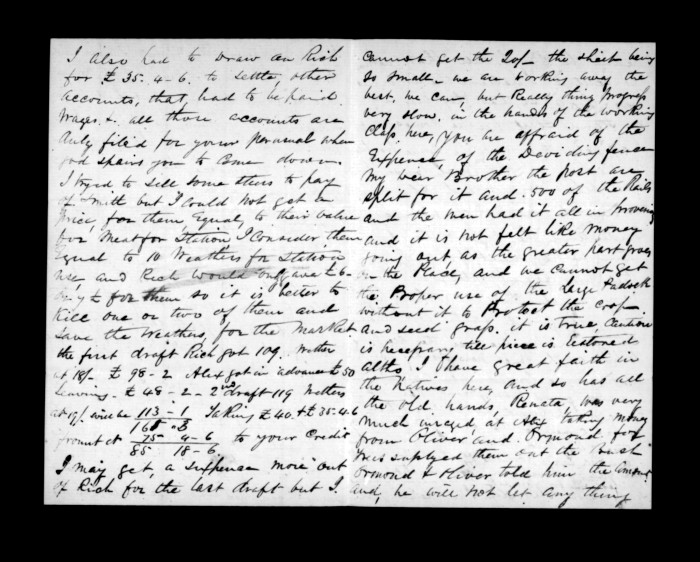 I also had to Draw on Rich
for £35.4-6. to settle other
accounts, that had to be paid.
Wages & all those accounts are
duly file'd for your perusual when
god spairs you to Come down.
I tryed to sell some steers to pay
off Smith but I Could Not get a
price, for them Equal to their value
for Meat for Station I Consider them
Equal to 10 Weathers for Station
use and Rich would only give £6-
for them so it is better to
Kill one or two of them and
save the Weathers, for the Market
the first draft Rich got 109. Wether
at 18/- £98-2 Alex got in advance £50
leaving £48-2- 2nd draft 119 Wethers
at 19/- will be 113-1 Taking £40. & £35-4.6
from it 75 4-6 to your Credit
85 18-6.
I may get, a suspense more out
of Rich for the last draft but I.
Cannot get the 20/- the sheep being
so small- we are working away the
best, we can, but Really thing progress
very slow. in the hands of the working
Class here, You are affraid of the
Expense, of the Deviding fence
My Dear Brother the Post are
split for it and 500 of the Rails
and the men had it all in
and it is not felt like money
going out as the greater part
on the Place, and we Cannot get
the Proper use of the large Padock
without it to Protect the Crop
and seed grass. it is true, Caution
is necessary till peace is Restored
altho I have great faith in
the Natives here, and so has all
the old hands, Renata, was very
much inraged, at Alex taking Money
from Oliver, and Ormond, for
supplyed them out the bush
Ormond & Oliver told him the amount
and, he will Not let any thing